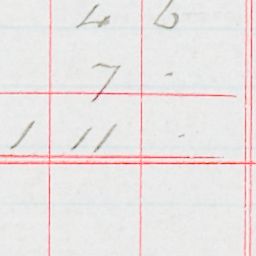 4 6
7 .
1 11 .